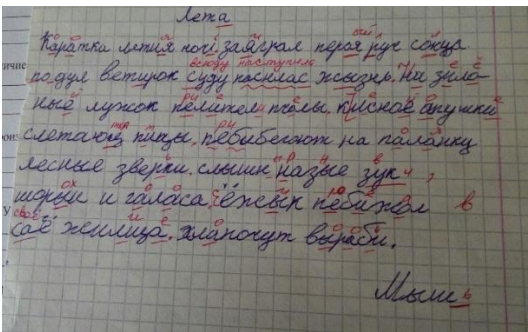 Лета
Каратка летния ночь. заяграл перая руч сонца
подул ветирок суду паснлас жызнь. На зило-
ные лужок пелители пчолы. к лисной апушки
слетают птицы. пебибегают на паланку
лесные зверки. слышн назые зуки,
шорхи и галаса. ёжык пебижал в
саё жилища. хлапочут выраби.
Мышь